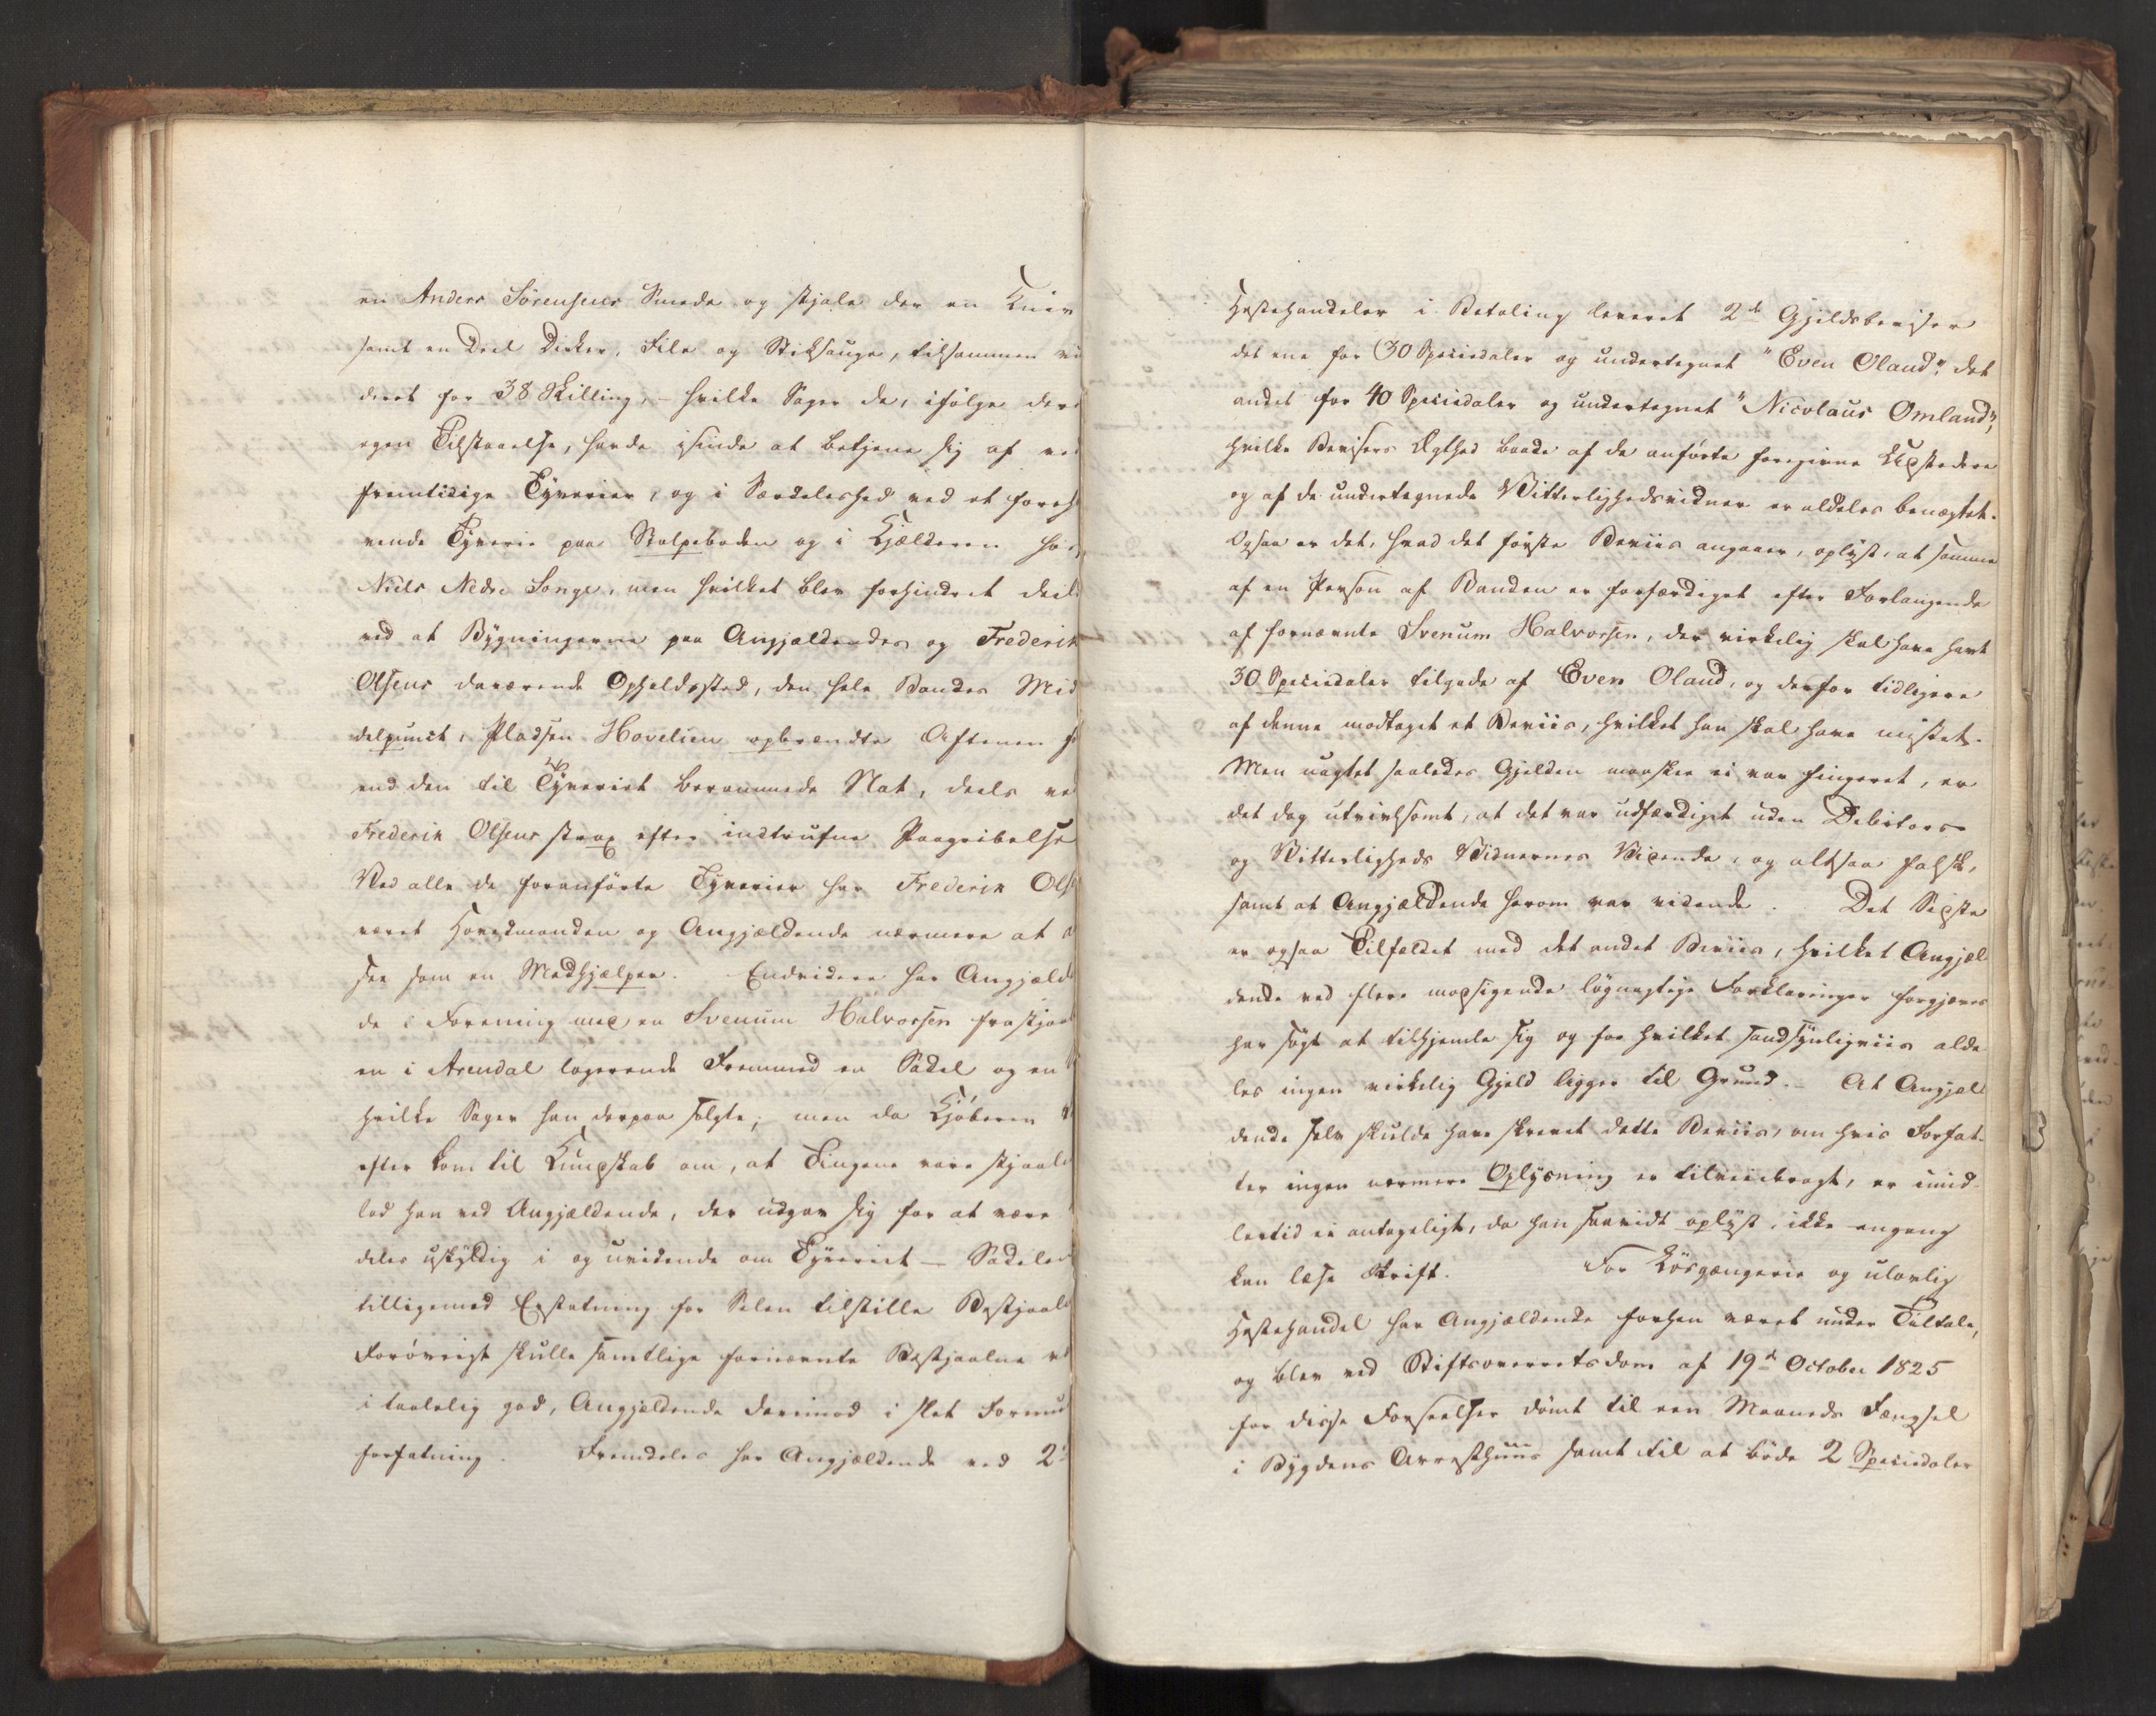 en Anders Sörensens Smede og stjale der en Kniv
samt en Deel Dirker, File og Stiksauge, tilsammen vur
deret for 38 Skilling, – hvilke Sager de, ifölge deres
egen Tilstaaelse, havde isinde at betjene sig af ved
fremtidige Tyverier, og i Særdeleshed ved et foreha
vende Tyverie paa Stolpeboden og i Kjælderen hos
Niels Nedre Songe, men hvilket blev forhindret deels
ved at Bygningerne paa Angjældendes og Frederik
Olsens daværende Opholdssted, den hele Bandes Mid
delpunct, Pladsen Hovelien opbrændte Aftenen
end den til Tyveriet berammede Nat, deels ved
Frederik Olsens strax efter indtrufne Paagribelse
Ved alle de foranförte Tyverier har Frederik Ols
været Hovedmanden og Angjældende nærmere at
see som en Medhjælper. Endvidere har Angjæld
de i Forening med en Svenum Halvorsen frastjaal
en i Arendal logerende Fremmed en Sadel og en
hvilke Sager han derpaa solgte; men da Kjöberen
efter kom til Kundskab om, at Tingene vare stjaal
lod han ved Angjældende, der udgav sig for at være
deles uskyldig i og uvidende om Tyveriet – Sadelen
tilligemed Erstatning for Selen tilstille Bestjaal
Forövrigt skulle samtlige fornævnte Bestjaalne
i taalelig god, Angjældende derimod i slet Formu
forfatning. Fremdeles har Angjældende ved 2
Hestehandeler i Betaling leveret 2de Gjældsbeviser
det ene for 30 Speciedaler og undertegnet "Even Oland", det
andet for 40 Speciedaler og undertegnet "Nicolaus Omland",
hvilke Bevisers Ægthed baade af de anförte foregivne Udstedere
og af de undertegnede Vitterlighedsvidner er aldeles benægtet.
Ogsaa er det, hvad det förste Beviis angaaer, oplyst, at samme
af en Person af Banden er forfærdiget efter Forlangende
af fornævnte Svenum Halvorsen, der virkelig skal have havt
30 Speciedaler tilgode af Even Oland, og derfor tidligere
af denne modtaget et Beviis, hvilket han skal have mistet.
Men uagtet saaledes Gjelden maaskee ei var fingeret, er
det dog utvivlsomt, at det var udfærdiget uden Debitors
og Vitterligheds Vidnernes Vidende, og altsaa falsk,
samt at Angjældende herom var vidende. Det Sidste
er ogsaa Tilfældet med det andet Beviis, hvilket Angjæl
dende ved flere modsigende lögnagtige Forklaringer forgjæves
har sögt at tilhjemle sig og for hvilket sandsynligviis alde
les ingen virkelig Gjeld ligger til Grund. – At Angjæl
dende selv skulde have skrevet dette Beviis, om hvis Forfat-
ter ingen nærmere Oplysning er tilveiebragt, er imid-
lertid ei antageligt, da han saavidt oplyst, ikke engang
kan læse Skrift. For Lösgængerie og ulovlig
Hestehandel har Angjældende forhen været under Tiltale,
og blev ved Stiftsoverretsdom af 19de October 1825
for disse Forseelser dömt til een Maaneds Fængsel
i Bygdens Arresthuus samt til at böde 2 Speciedaler